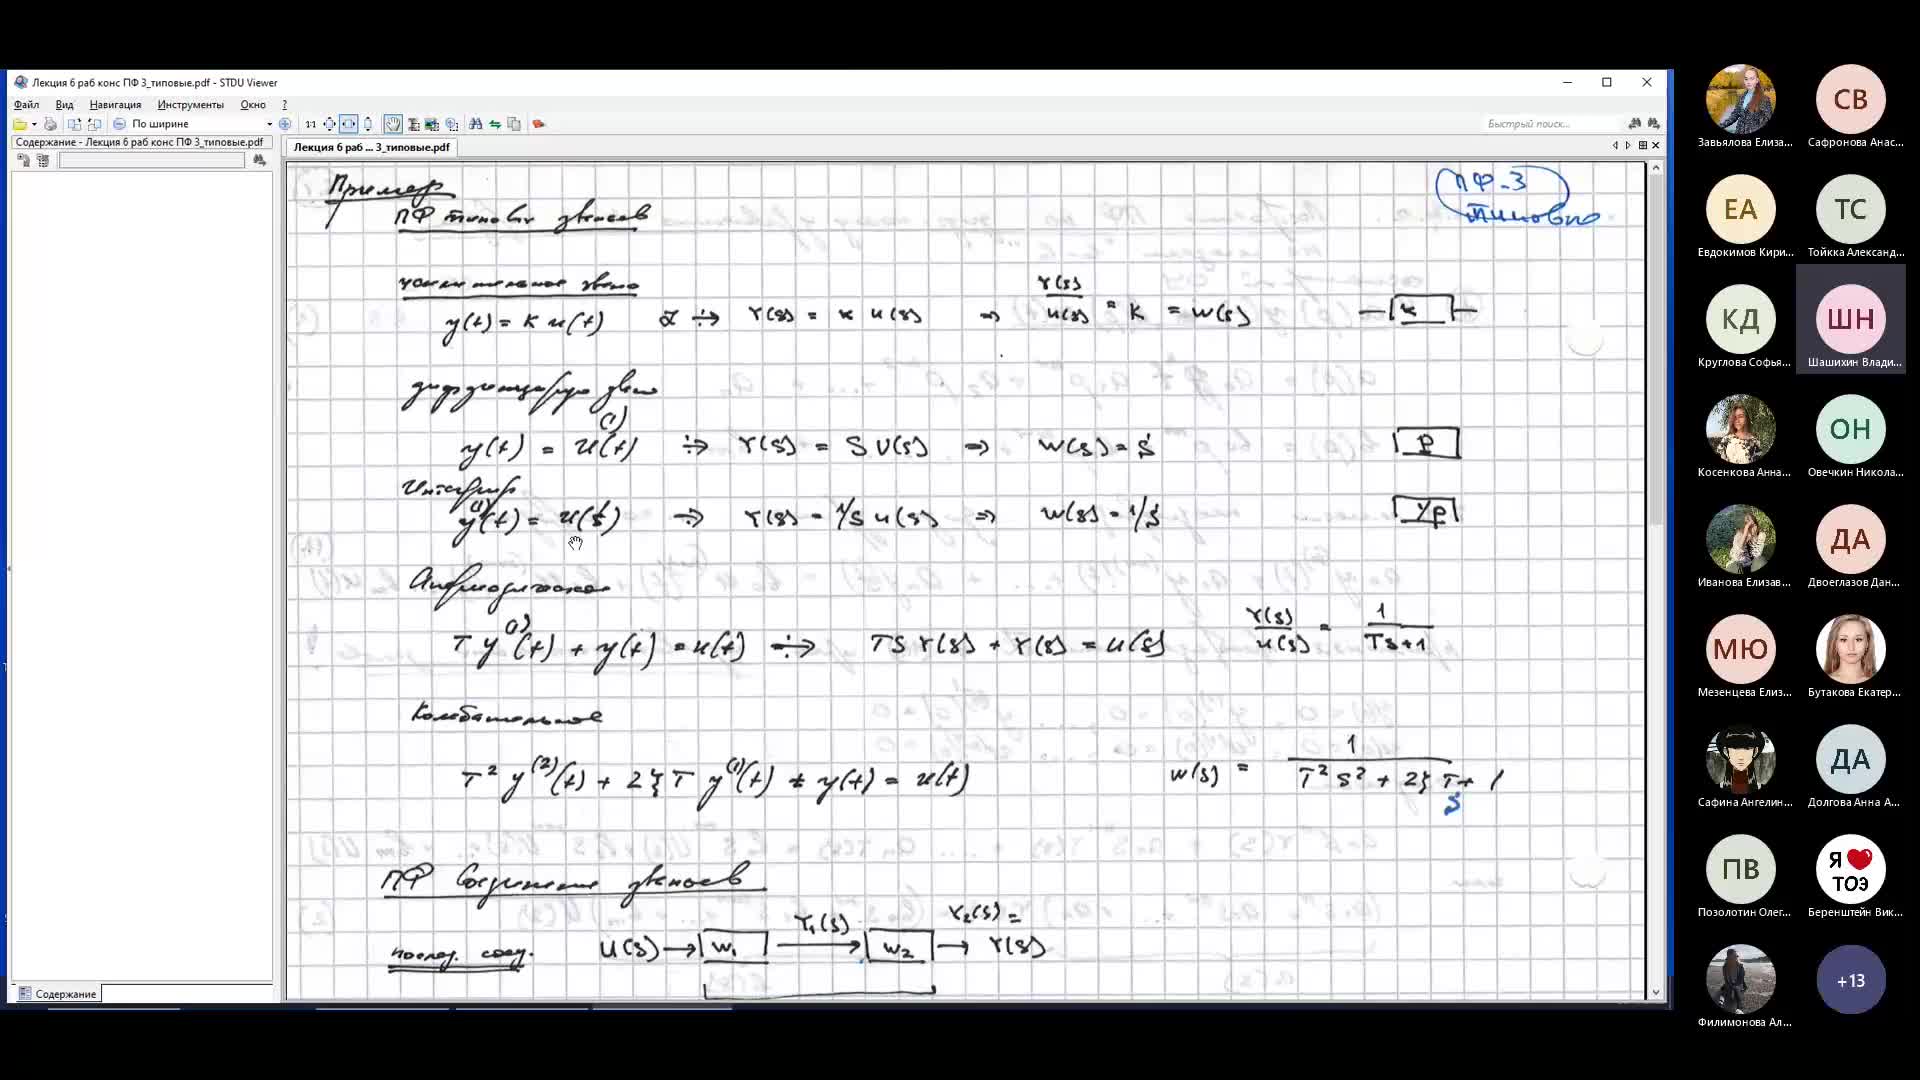 Лекция 6 раб конс ПФ 3_типовые.pdf - STDU Viewer
Файл Вид Навигация Инструменты Окно ?
По ширине
1:1
Быстрый поиск...
Содержание - Лекция 6 раб конс ПФ 3_типовые.pdf
Лекция 6 раб ... 3_типовые.pdf
Пример
ПФ-3
типовые
ПФ типовых звеньев
усилительное звено
y(t) = k u(t) ℒ ÷> Y(s) = k u(s) => Y(s)/u(s) = k = W(s)
k
дифференцирующ звено
y(t) = u^(1)(t) ÷> Y(s) = S U(s) => W(s) = S
p
Интегрир
y^(1)(t) = u(t) ÷> Y(s) = 1/s u(s) => W(s) = 1/s
1/p
Апериодическое
T y^(1)(t) + y(t) = u(t) ÷> TS Y(s) + Y(s) = u(s) Y(s)/u(s) = 1/(Ts+1)
Колебательное
T² y^(2)(t) + 2ξT y^(1)(t) + y(t) = u(t) W(s) = 1/(T² s² + 2ξ T s + 1)
ПФ Соединения звеньев
послед. соед. U(s) → W₁ Y₁(s) → W₂ → Y₂(s) = Y(s)
Содержание
Завьялова Елиза...
СВ
Сафронова Анас...
ЕА
Евдокимов Кири...
ТС
Тойкка Александ...
КД
Круглова Софья...
ШН
Шашихин Влади...
Косенкова Анна...
ОН
Овечкин Никола...
Иванова Елизав...
ДА
Двоеглазов Дан...
МЮ
Мезенцева Елиз...
Бутакова Екатер...
Сафина Ангелин...
ДА
Долгова Анна А...
ПВ
Позолотин Олег...
Я ❤ ТОЭ
Беренштейн Вик...
Филимонова Ал...
+13